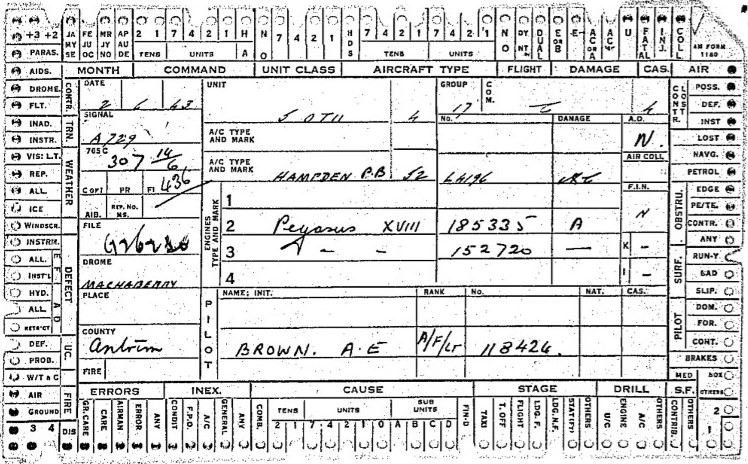 +3 +2 JA MY SE FE JU OC MR JY NO AP AU DE 2 1 7 4 2 1 H N O 7 4 2 1 H D S 7 4 2 1 7 4 2 1 N O DY NT DUAL E OR B E AC OR A AC U FATAL INJ. COLL AM FORM 1180
PARAS. TENS UNITS A TENS UNITS
AIDS. MONTH COMMAND UNIT CLASS AIRCRAFT TYPE FLIGHT DAMAGE CAS. AIR
DROME CONTR. DATE UNIT GROUP COM. CONTR. CLOSTR. POSS.
FLT. 2 6 43 5 OTU 4 17 4 DEF.
INAD. TRN. SIGNAL A/C TYPE AND MARK No. DAMAGE A.D. INST
INSTR. A729 N. LOST
VIS: L.T. WEATHER 765 C 307 14/6 A/C TYPE AND MARK AIR COLL NAVG.
REP. 436 HAMPDEN P.B. 52 L4196 PETROL
ALL COPT PR FI F.I.N. OBSTRU. EDGE
ICE AIB. REP. No. MS. ENGINES TYPE AND MARK 1 N PE/TE.
WINDSCR. FILE 2 Pegasus XVIII 185335 A CONTR.
INSTRM. 3 " - - 152720 — K - ANY
ALL DEFECT DROME SURF. RUN-Y
INST'L MACHABERRY 4 I - BAD
HYD. PLACE PILOT NAME: INIT. RANK No. NAT. CAS. SLIP.
ALL PILOT DOM.
RETR'CT COUNTY FOR.
DEF. UC. Antrim BROWN. A.E A/F/Lt 118426. CONT.
PROB. FIRE BRAKES
W/T & C MED BOX
AIR FIRE ERRORS INEX. CAUSE STAGE DRILL S.F. OTHERS
GROUND GR. CARE CARE AIRMAN ERROR ANY CONDIT F.P.O. A/C GENERAL ANY COMB. TENS UNITS SUB UNITS FIN-D TAXI T. OFF FLIGHT LDG. F. LDG. N.F. STAT(F) OTHERS U/C ENGINE A/C OTHERS CONTRIB. OTHERS 2
3 4 DIS 2 1 7 4 2 1 0 A B C D 1